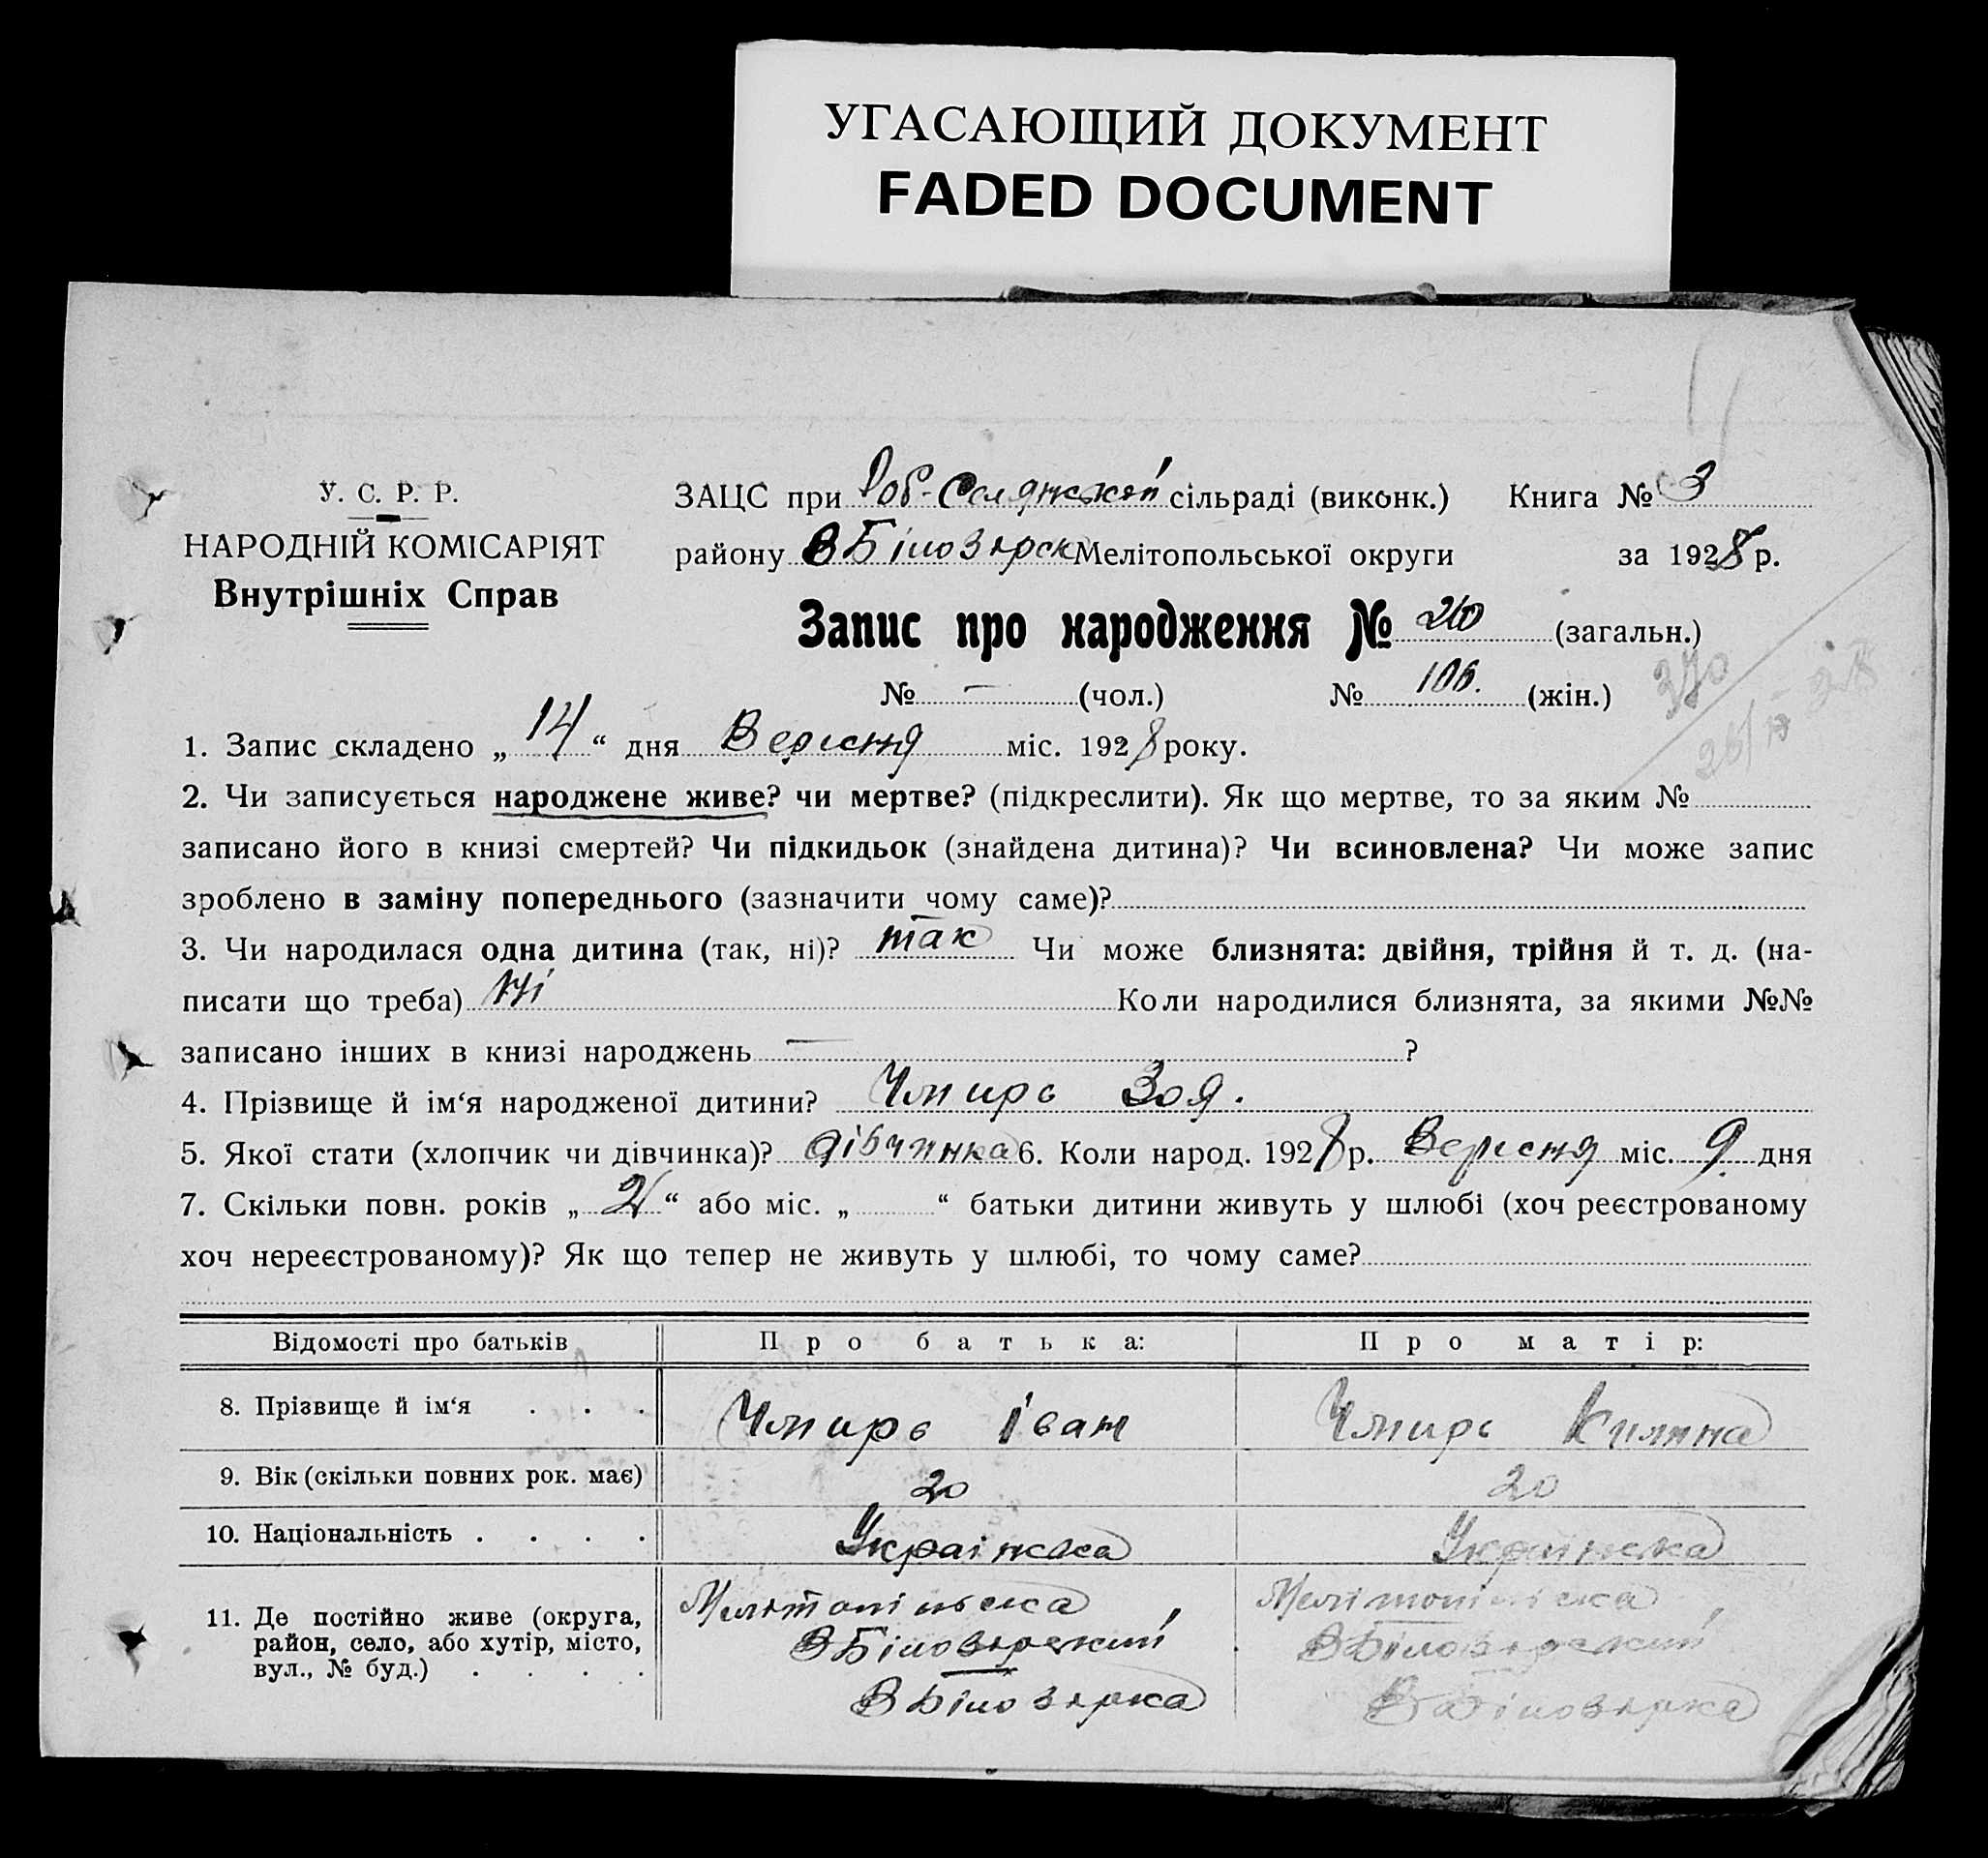 УГАСАЮЩИЙ ДОКУМЕНТ
FADED DOCUMENT
У. С. Р. Р.
НАРОДНІЙ КОМІСАРІЯТ
Внутрішніх Справ
ЗАЦС при Роб-Селянській сільраді (виконк.) Книга № 3
району ВБілозірськ Мелітопольської округи за 1928 р.
Запис про народження № 210 (загальн.)
№ — (чол.) № 106. (жін.)
370
1. Запис складено „14“ дня Вересня міс. 1928 року.
2. Чи записується народжене живе? чи мертве? (підкреслити). Як що мертве, то за яким №
записано його в книзі смертей? Чи підкидьок (знайдена дитина)? Чи всиновлена? Чи може запис
зроблено в заміну попереднього (зазначити чому саме)?
3. Чи народилася одна дитина (так, ні)? так Чи може близнята: двійня, трійня й т. д. (на-
писати що треба) Ні Коли народилися близнята, за якими №№
записано інших в книзі народжень — ?
4. Прізвище й ім‘я народженої дитини? Чмирь Зоя.
5. Якої стати (хлопчик чи дівчинка)? дівчинка 6. Коли народ. 1928 р. Вересня міс. 9 дня
7. Скільки повн. років „2“ або міс. „ “ батьки дитини живуть у шлюбі (хоч реєстрованому
хоч нереєстрованому)? Як що тепер не живуть у шлюбі, то чому саме?
Відомості про батьків Про батька: Про матір:
8. Прізвище й ім‘я . . . Чмирь Іван Чмирь Килина
9. Вік (скільки повних рок. має) 20 20
10. Національність . . . . Українська Українська
11. Де постійно живе (округа, Мелітопільська, Мелітопільська,
район, село, або хутір, місто, ВБілозірський ВБілозірський
вул., № буд.) . . . . ВБілозірка ВБілозірка